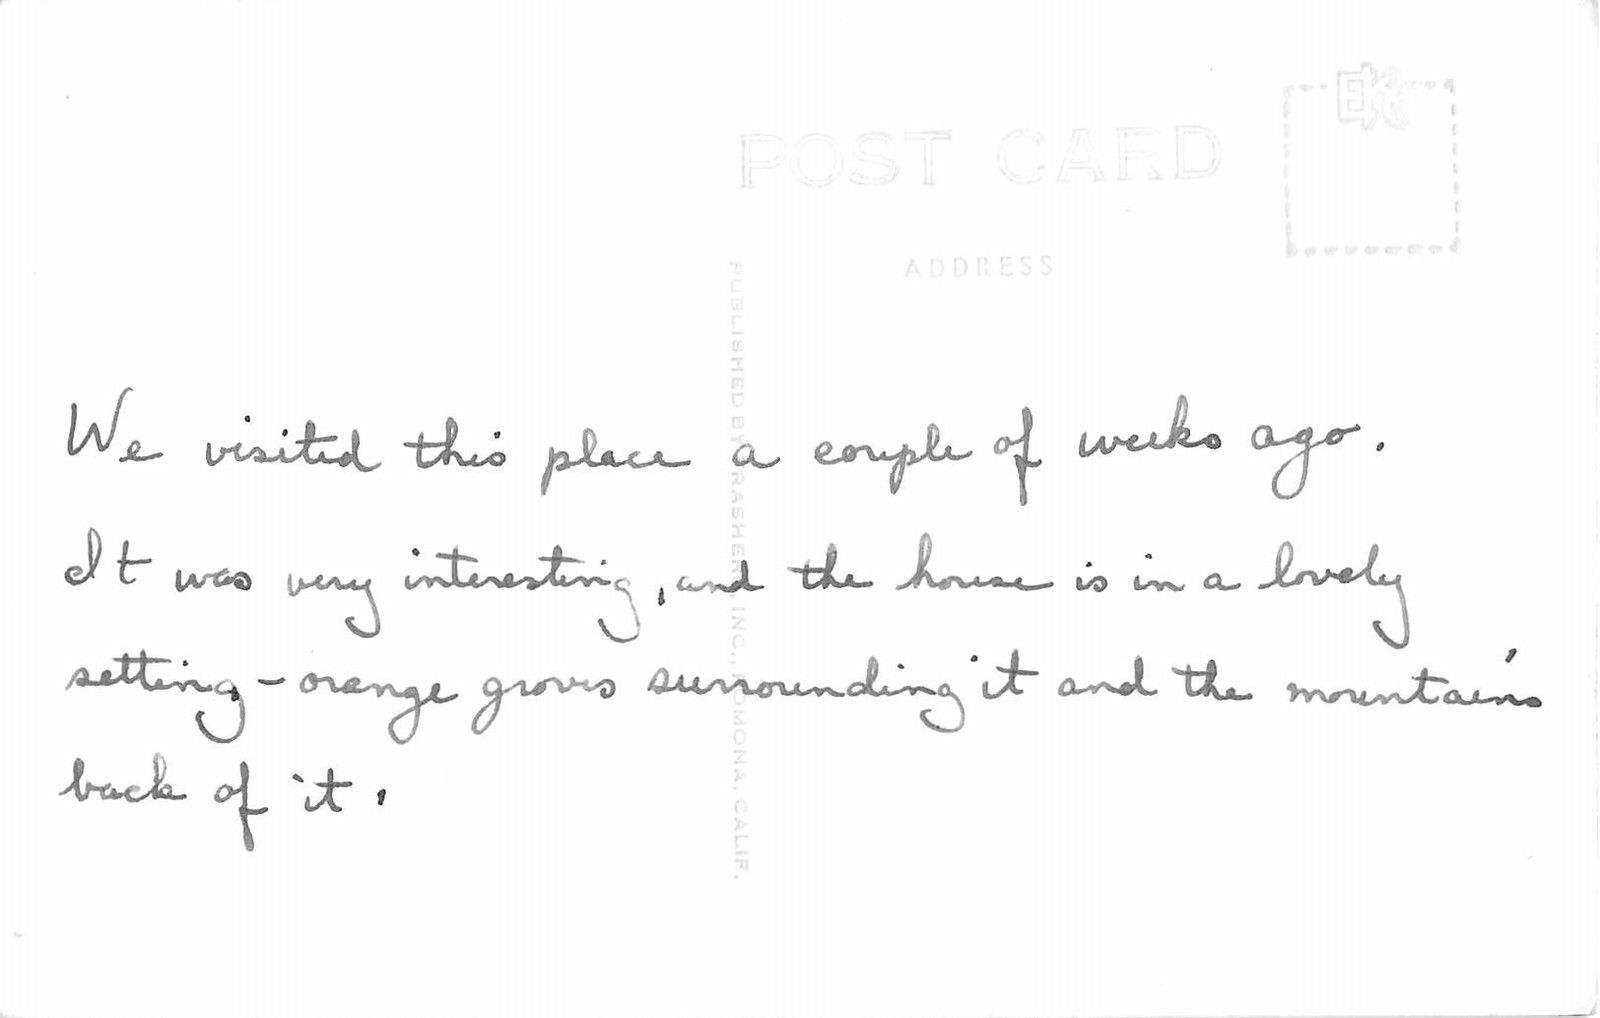 POST CARD
ADDRESS
PUBLISHED BY FRASHERS, INC., POMONA, CALIF.
We visited this place a couple of weeks ago.
It was very interesting, and the house is in a lovely
setting - orange groves surrounding it and the mountains
back of it.